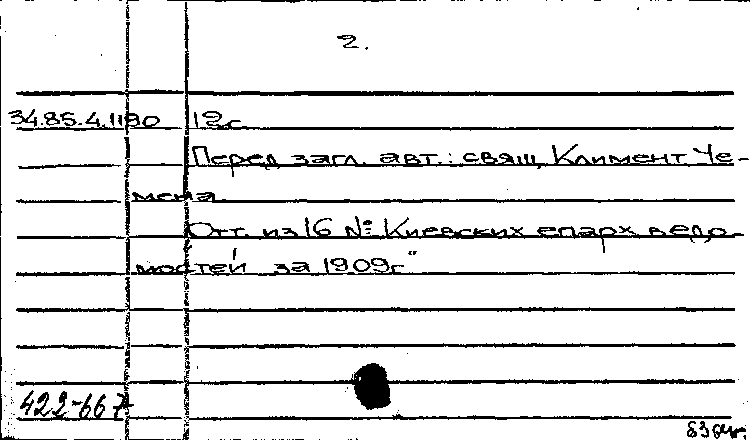 2.
34.85.4.1190 12 с.
Перед загл. авт.: свящ. Климент Че-
мена.
Отт. из 16 № Киевских епарх. ведо-
мостей за 1909г."
422-66